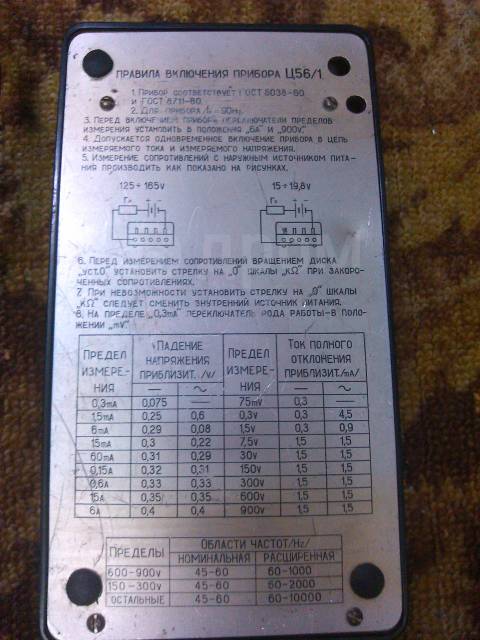 ПРАВИЛА ВКЛЮЧЕНИЯ ПРИБОРА Ц56/1
1. ПРИБОР СООТВЕТСТВУЕТ ГОСТ 8038-60
и ГОСТ 8711-60.
2. ДЛЯ ПРИБОРА
3. ПЕРЕД ВКЛЮЧЕНИЕМ ПРИБОРА ПЕРЕКЛЮЧАТЕЛИ ПРЕДЕЛОВ
ИЗМЕРЕНИЯ УСТАНОВИТЬ В ПОЛОЖЕНИЯ „6А" И „900V".
4. ДОПУСКАЕТСЯ ОДНОВРЕМЕННОЕ ВКЛЮЧЕНИЕ ПРИБОРА В ЦЕПЬ
ИЗМЕРЯЕМОГО ТОКА И ИЗМЕРЯЕМОГО НАПРЯЖЕНИЯ.
5. ИЗМЕРЕНИЕ СОПРОТИВЛЕНИЙ С НАРУЖНЫМ ИСТОЧНИКОМ ПИТА-
НИЯ ПРОИЗВОДИТЬ КАК ПОКАЗАНО НА РИСУНКАХ.
125÷165V 15÷19,8V
6. ПЕРЕД ИЗМЕРЕНИЕМ СОПРОТИВЛЕНИЙ ВРАЩЕНИЕМ ДИСКА
„УСТ.О" УСТАНОВИТЬ СТРЕЛКУ НА „0" ШКАЛЫ „КΩ" ПРИ ЗАКОРО-
ЧЕННЫХ СОПРОТИВЛЕНИЯХ.
7. ПРИ НЕВОЗМОЖНОСТИ УСТАНОВИТЬ СТРЕЛКУ НА „0" ШКАЛЫ
„КΩ" СЛЕДУЕТ СМЕНИТЬ ВНУТРЕННИЙ ИСТОЧНИК ПИТАНИЯ.
8. НА ПРЕДЕЛЕ „0,3mA" ПЕРЕКЛЮЧАТЕЛЬ РОДА РАБОТЫ-В ПОЛО-
ЖЕНИИ „mV".
ПРЕДЕЛ ИЗМЕРЕ-НИЯ ПАДЕНИЕ НАПРЯЖЕНИЯ ПРИБЛИЗИТ. /V/ ПРЕДЕЛ ИЗМЕРЕ-НИЯ ТОК ПОЛНОГО ОТКЛОНЕНИЯ ПРИБЛИЗИТ. /mA/
— ~ — ~
0,3mA 0,075 — 75mV 0,3 —
1,5mA 0,25 0,6 0,3V 0,3 4,5
6mA 0,29 0,08 1,5V 0,3 0,9
15mA 0,3 0,22 7,5V 1,5 1,5
60mA 0,31 0,29 30V 1,5 1,5
0,15A 0,32 0,31 150V 1,5 1,5
0,6A 0,33 0,33 300V 1,5 1,5
15A 0,35 0,35 600V 1,5 1,5
6A 0,4 0,4 900V 1,5 1,5
ПРЕДЕЛЫ ОБЛАСТИ ЧАСТОТ/Hz/
НОМИНАЛЬНАЯ РАСШИРЕННАЯ
600-900V 45-60 60-1000
150-300V 45-60 60-2000
ОСТАЛЬНЫЕ 45-60 60-10000